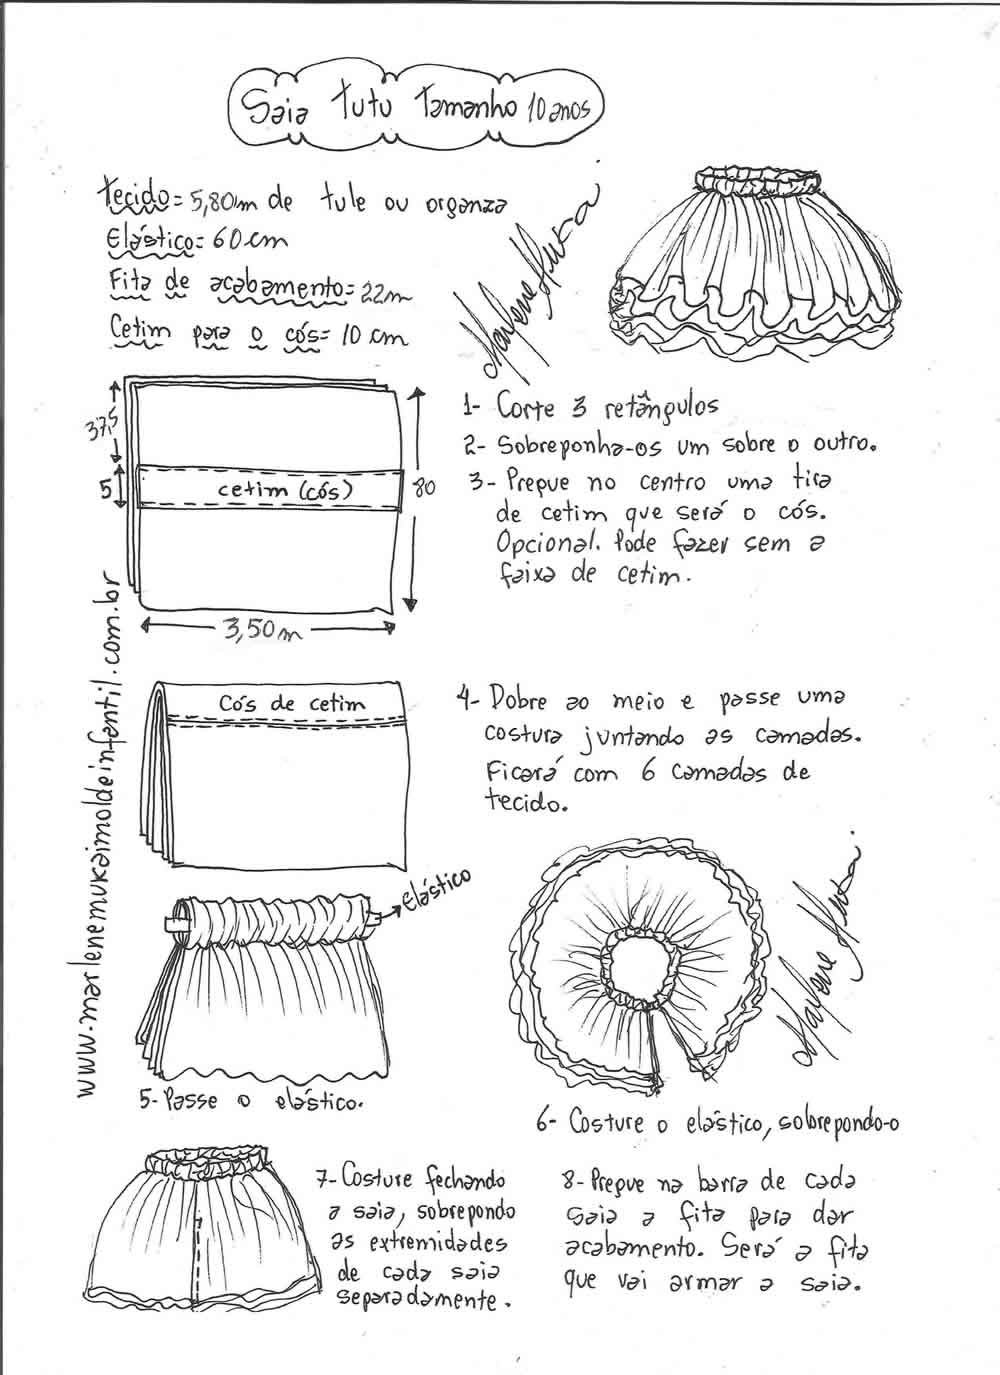 Saia tutu tamanho 10 anos
Tecido= 5,80m de tule ou organza
Elástico= 60 cm
Fita de acabamento= 22m
Cetim para o cós= 10 cm
37,5
5
cetim (cós)
80
3,50m
1- Corte 3 retângulos
2- Sobreponha-os um sobre o outro.
3- Pregue no centro uma tira
de cetim que será o cós.
Opcional. Pode fazer sem a
faixa de cetim.
www.marlenemukaimoldeinfantil.com.br
Cós de cetim
4- Dobre ao meio e passe uma
costura juntando as camadas.
Ficará com 6 camadas de
tecido.
elástico
5- Passe o elástico.
6- Costure o elástico, sobrepondo-o
7- Costure fechando
a saia, sobrepondo
as extremidades
de cada saia
separadamente.
8- Pregue na barra de cada
saia a fita para dar
acabamento. Será a fita
que vai armar a saia.